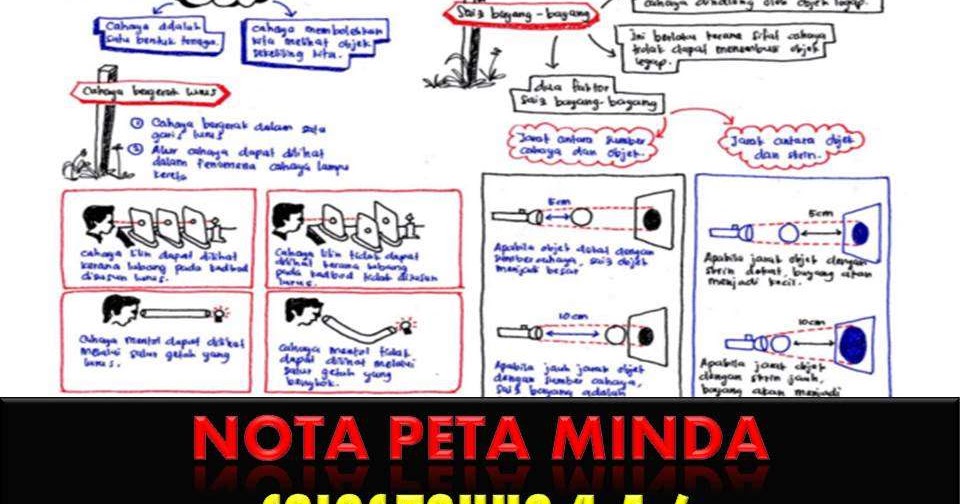 Cahaya adalah
satu bentuk tenaga.
cahaya membolehkan
kita melihat objek
sekeliling kita.
Cahaya bergerak lurus
Cahaya bergerak dalam satu
garis lurus
Alur cahaya dapat dilihat
dalam fenomena cahaya lampu
kereta
cahaya lilin dapat dilihat
kerana lubang pada kadbod
disusun lurus.
Cahaya lilin tidak dapat
dilihat kerana lubang
pada kadbod tidak disusun
lurus.
Cahaya mentol dapat dilihat
melalui salur getah yang
lurus.
Cahaya mentol tidak
dapat dilihat melalui
salur getah yang
bengkok.
Saiz bayang-bayang
cahaya dihalang oleh objek legap.
Ini berlaku kerana sifat cahaya
tidak dapat menembusi objek
legap.
dua faktor
saiz bayang-bayang
Jarak antara sumber
cahaya dan objek.
Jarak antara objek
dan skrin.
5cm
Apabila objek dekat dengan
sumber cahaya, saiz objek
menjadi besar
10cm
Apabila jauh jarak objek
dengan sumber cahaya,
saiz bayang adalah
5cm
Apabila jarak objek dengan
skrin dekat, bayang akan
menjadi kecil.
10cm
Apabila jarak objek
dengan skrin jauh,
bayang akan menjadi
NOTA PETA MINDA